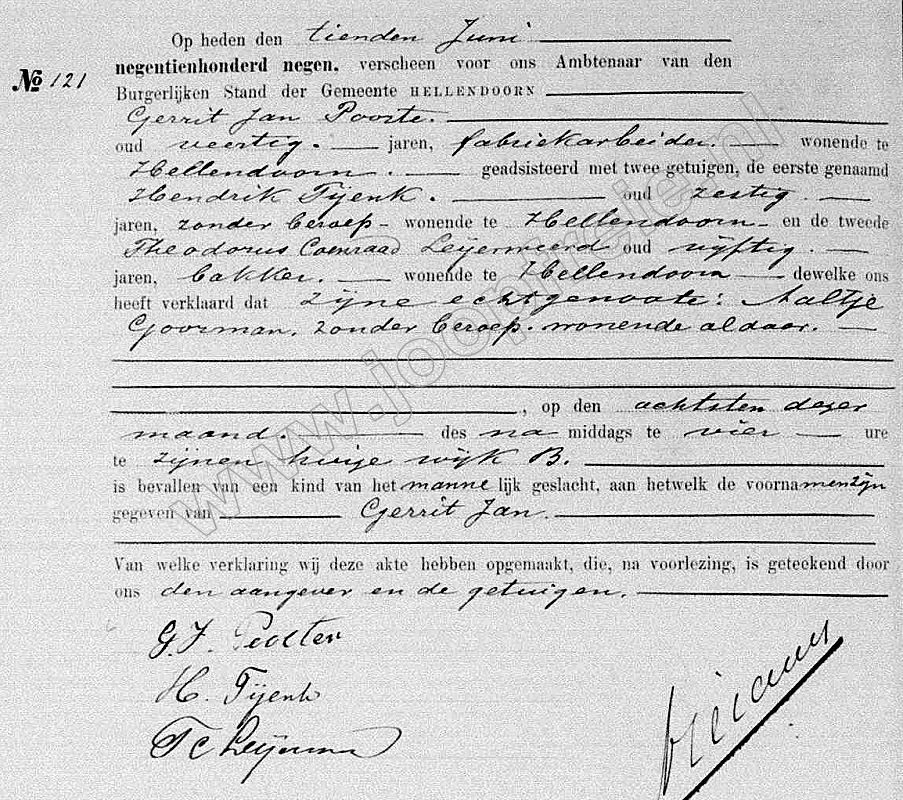 Op heden den tienden Juni
No 121
negentienhonderd negen, verscheen voor ons Ambtenaar van den
Burgerlijken Stand der Gemeente HELLENDOORN
Gerrit Jan Pooste.
oud veertig. jaren, fabriekarbeider. wonende te
Hellendoorn. geadsisteerd met twee getuigen, de eerste genaamd
Hendrik Tijenk. oud zestig
jaren, zonder beroep wonende te Hellendoorn en de tweede
Theodorus Coenraad Leijermeerd oud vijftig.
jaren, bakker. wonende te Hellendoorn dewelke ons
heeft verklaard dat zijne echtgenoote: Aaltje
Goorman, zonder beroep. wonende aldaar.
, op den achtsten dezer
maand. des na middags te vier ure
te zijnen huize wijk B.
is bevallen van een kind van het mannelijk geslacht, aan hetwelk de voornamen zijn
gegeven van Gerrit Jan.
Van welke verklaring wij deze akte hebben opgemaakt, die, na voorlezing, is geteekend door
ons den aangever en de getuigen.
G. J.
H. Tijenk
T C